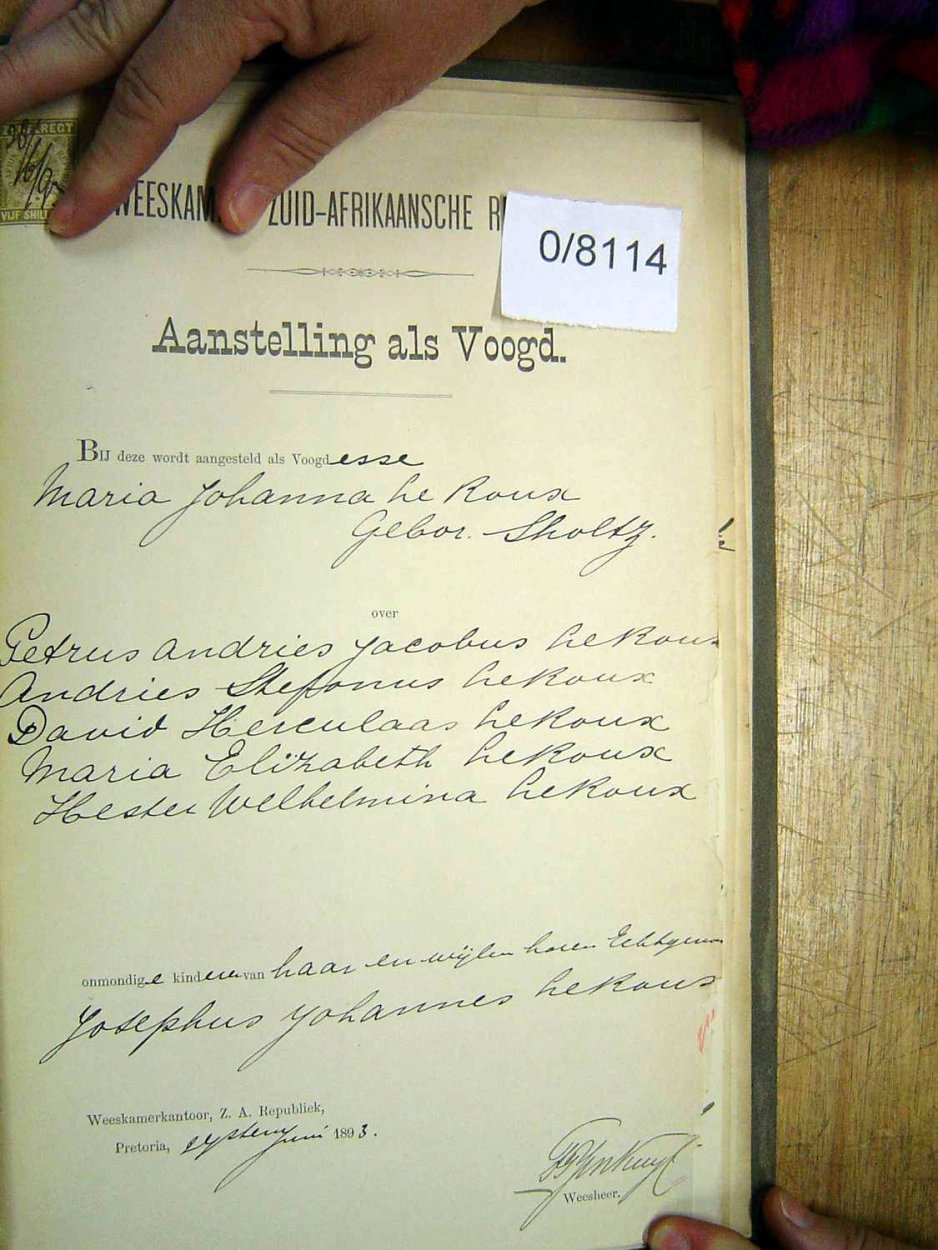 REGT
VIJF SHILL
WEESKAM ZUID-AFRIKAANSCHE R
0/8114
Aanstelling als Voogd.
BIJ deze wordt aangesteld als Voogdesse
Maria Johanna Le Roux
Gebor. Sholtz.
over
Petrus Andries Jacobus Le Roux
Andries Stefonus Le Roux
David Herculaas Le Roux
Maria Elizabeth Le Roux
Hester Welhelmina Le Roux
onmondige kinderen van haar en wijlen haren Echtgenoo
Josephus Johannes Le Roux
Weeskamerkantoor, Z. A. Republiek,
Pretoria, Juni 1893.
Weesheer.